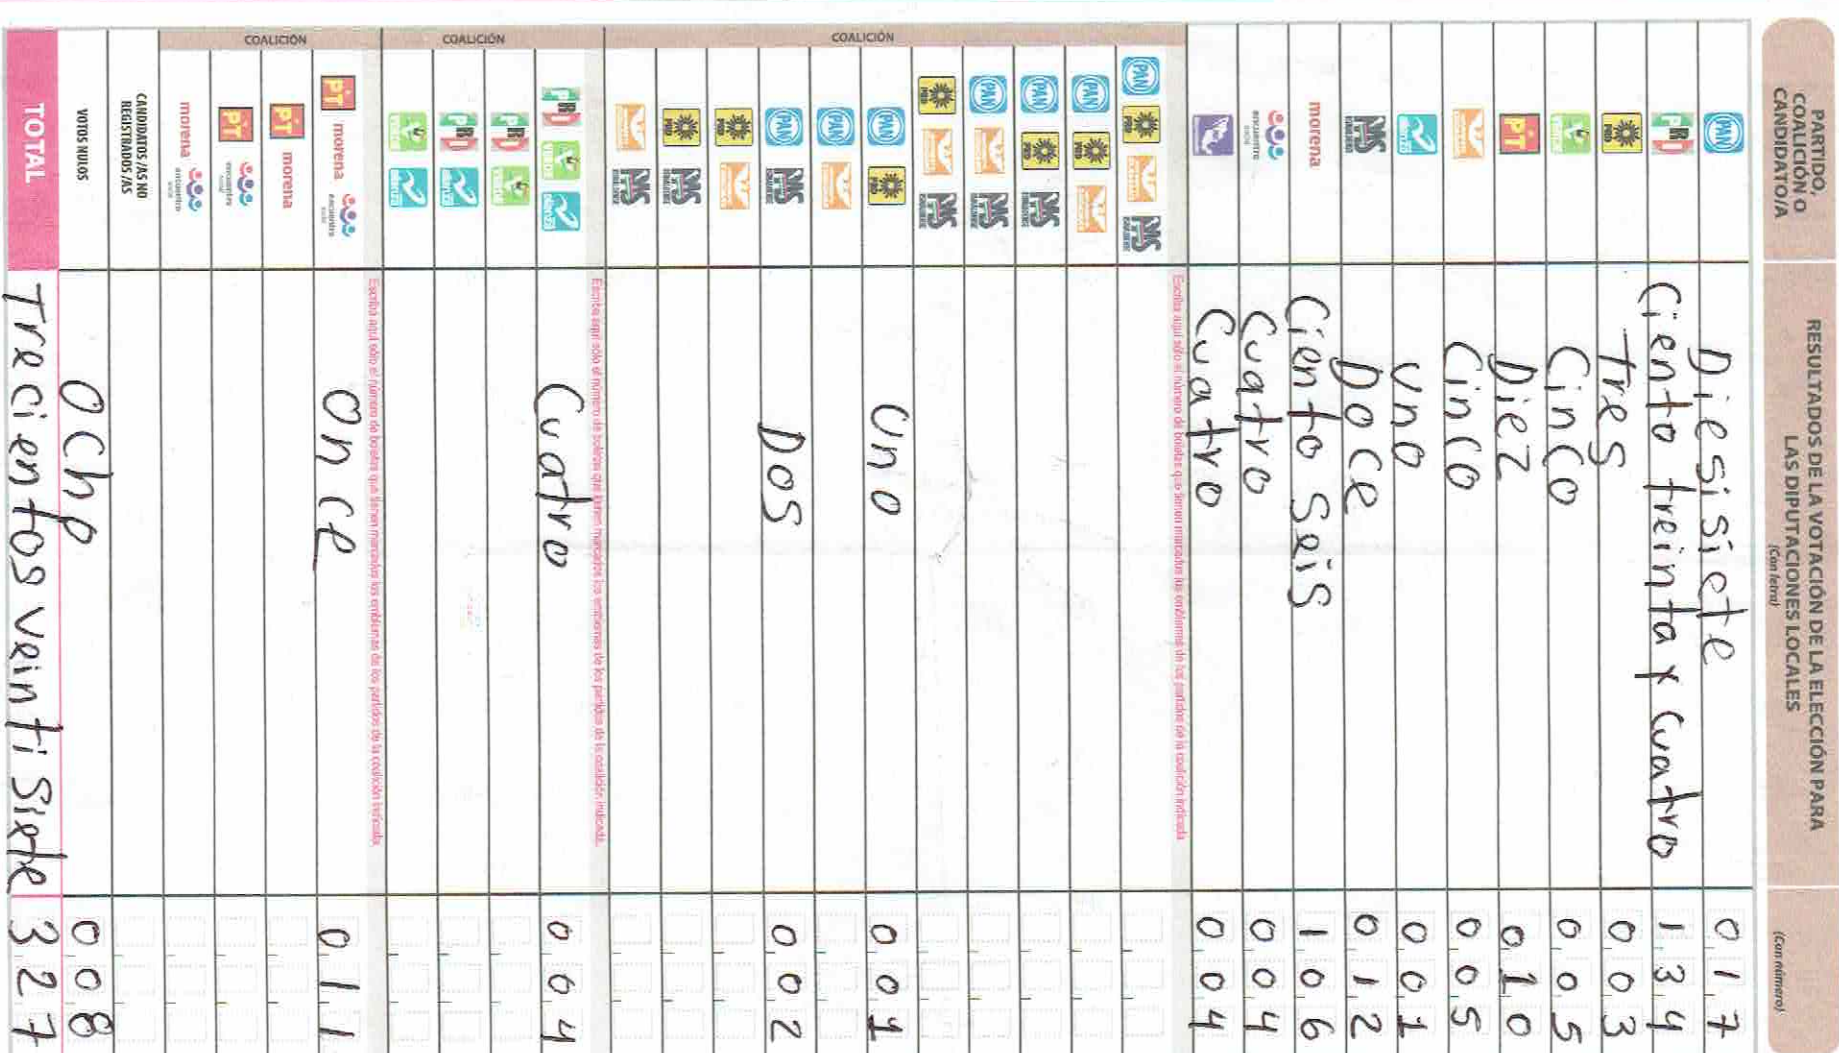 PARTIDO, COALICIÓN O CANDIDATO/A
RESULTADOS DE LA VOTACIÓN DE LA ELECCIÓN PARA LAS DIPUTACIONES LOCALES
(Con letra)
(Con número)
PAN Diesisiete 017
PRI Ciento treinta y cuatro 134
PRD Tres 003
VERDE Cinco 005
PT Diez 010
Cinco 005
alianza Uno 001
Doce 012
morena Ciento Seis 106
encuentro social Cuatro 004
Cuatro 004
COALICIÓN
Escriba aquí sólo el número de boletas que tienen marcados los emblemas de los partidos de la coalición indicada
PAN PRD
PAN PRD
PAN PRD
PAN
PRD
PAN PRD Uno 001
PAN
PAN Dos 002
PRD
PRD
COALICIÓN
Escriba aquí sólo el número de boletas que tienen marcados los emblemas de los partidos de la coalición indicada
PRI VERDE alianza Cuatro 004
PRI VERDE
PRI alianza
VERDE alianza
COALICIÓN
Escriba aquí sólo el número de boletas que tienen marcados los emblemas de los partidos de la coalición indicada
PT morena encuentro social Once 011
PT morena
PT encuentro social
morena encuentro social
CANDIDATOS/AS NO REGISTRADOS/AS
VOTOS NULOS Ocho 008
TOTAL Trecientos veintisiete 327